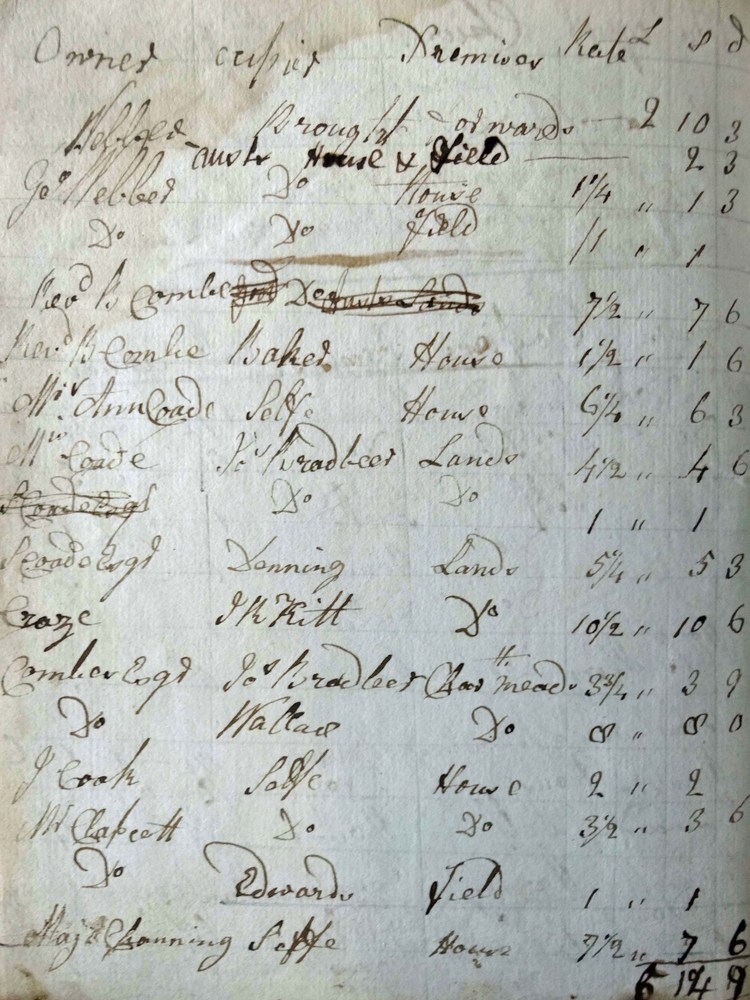 Owner ccupier Premises Rate £ s d
Brought forwards — 2 10 3
Webber House & Field — 2 3
Geo Webber Do House 1¼ " 1 3
Do Do Field 1 " 1
Revd B Combe De 7½ " 7 6
Revd B Combe Baker House 1½ " 1 6
Mrs Ann Coade Selfe House 6¼ " 6 3
Mrs Coade Jos Bradbeer Lands 4½ " 4 6
Do Do 1 " 1
S Coade Esqr Denning Lands 5¼ " 5 3
Croze J K Kitt Do 10½ " 10 6
Comber Esqr Jos Bradbeer mead 3¾ " 3 9
Do Wallace Do 8 " 8 0
J Cook Selfe House 2 " 2
Mr Clapcott Do Do 3½ " 3 6
Do Edwards Field 1 " 1
Majr Channing Selfe House 7½ " 7 6
6 14 9